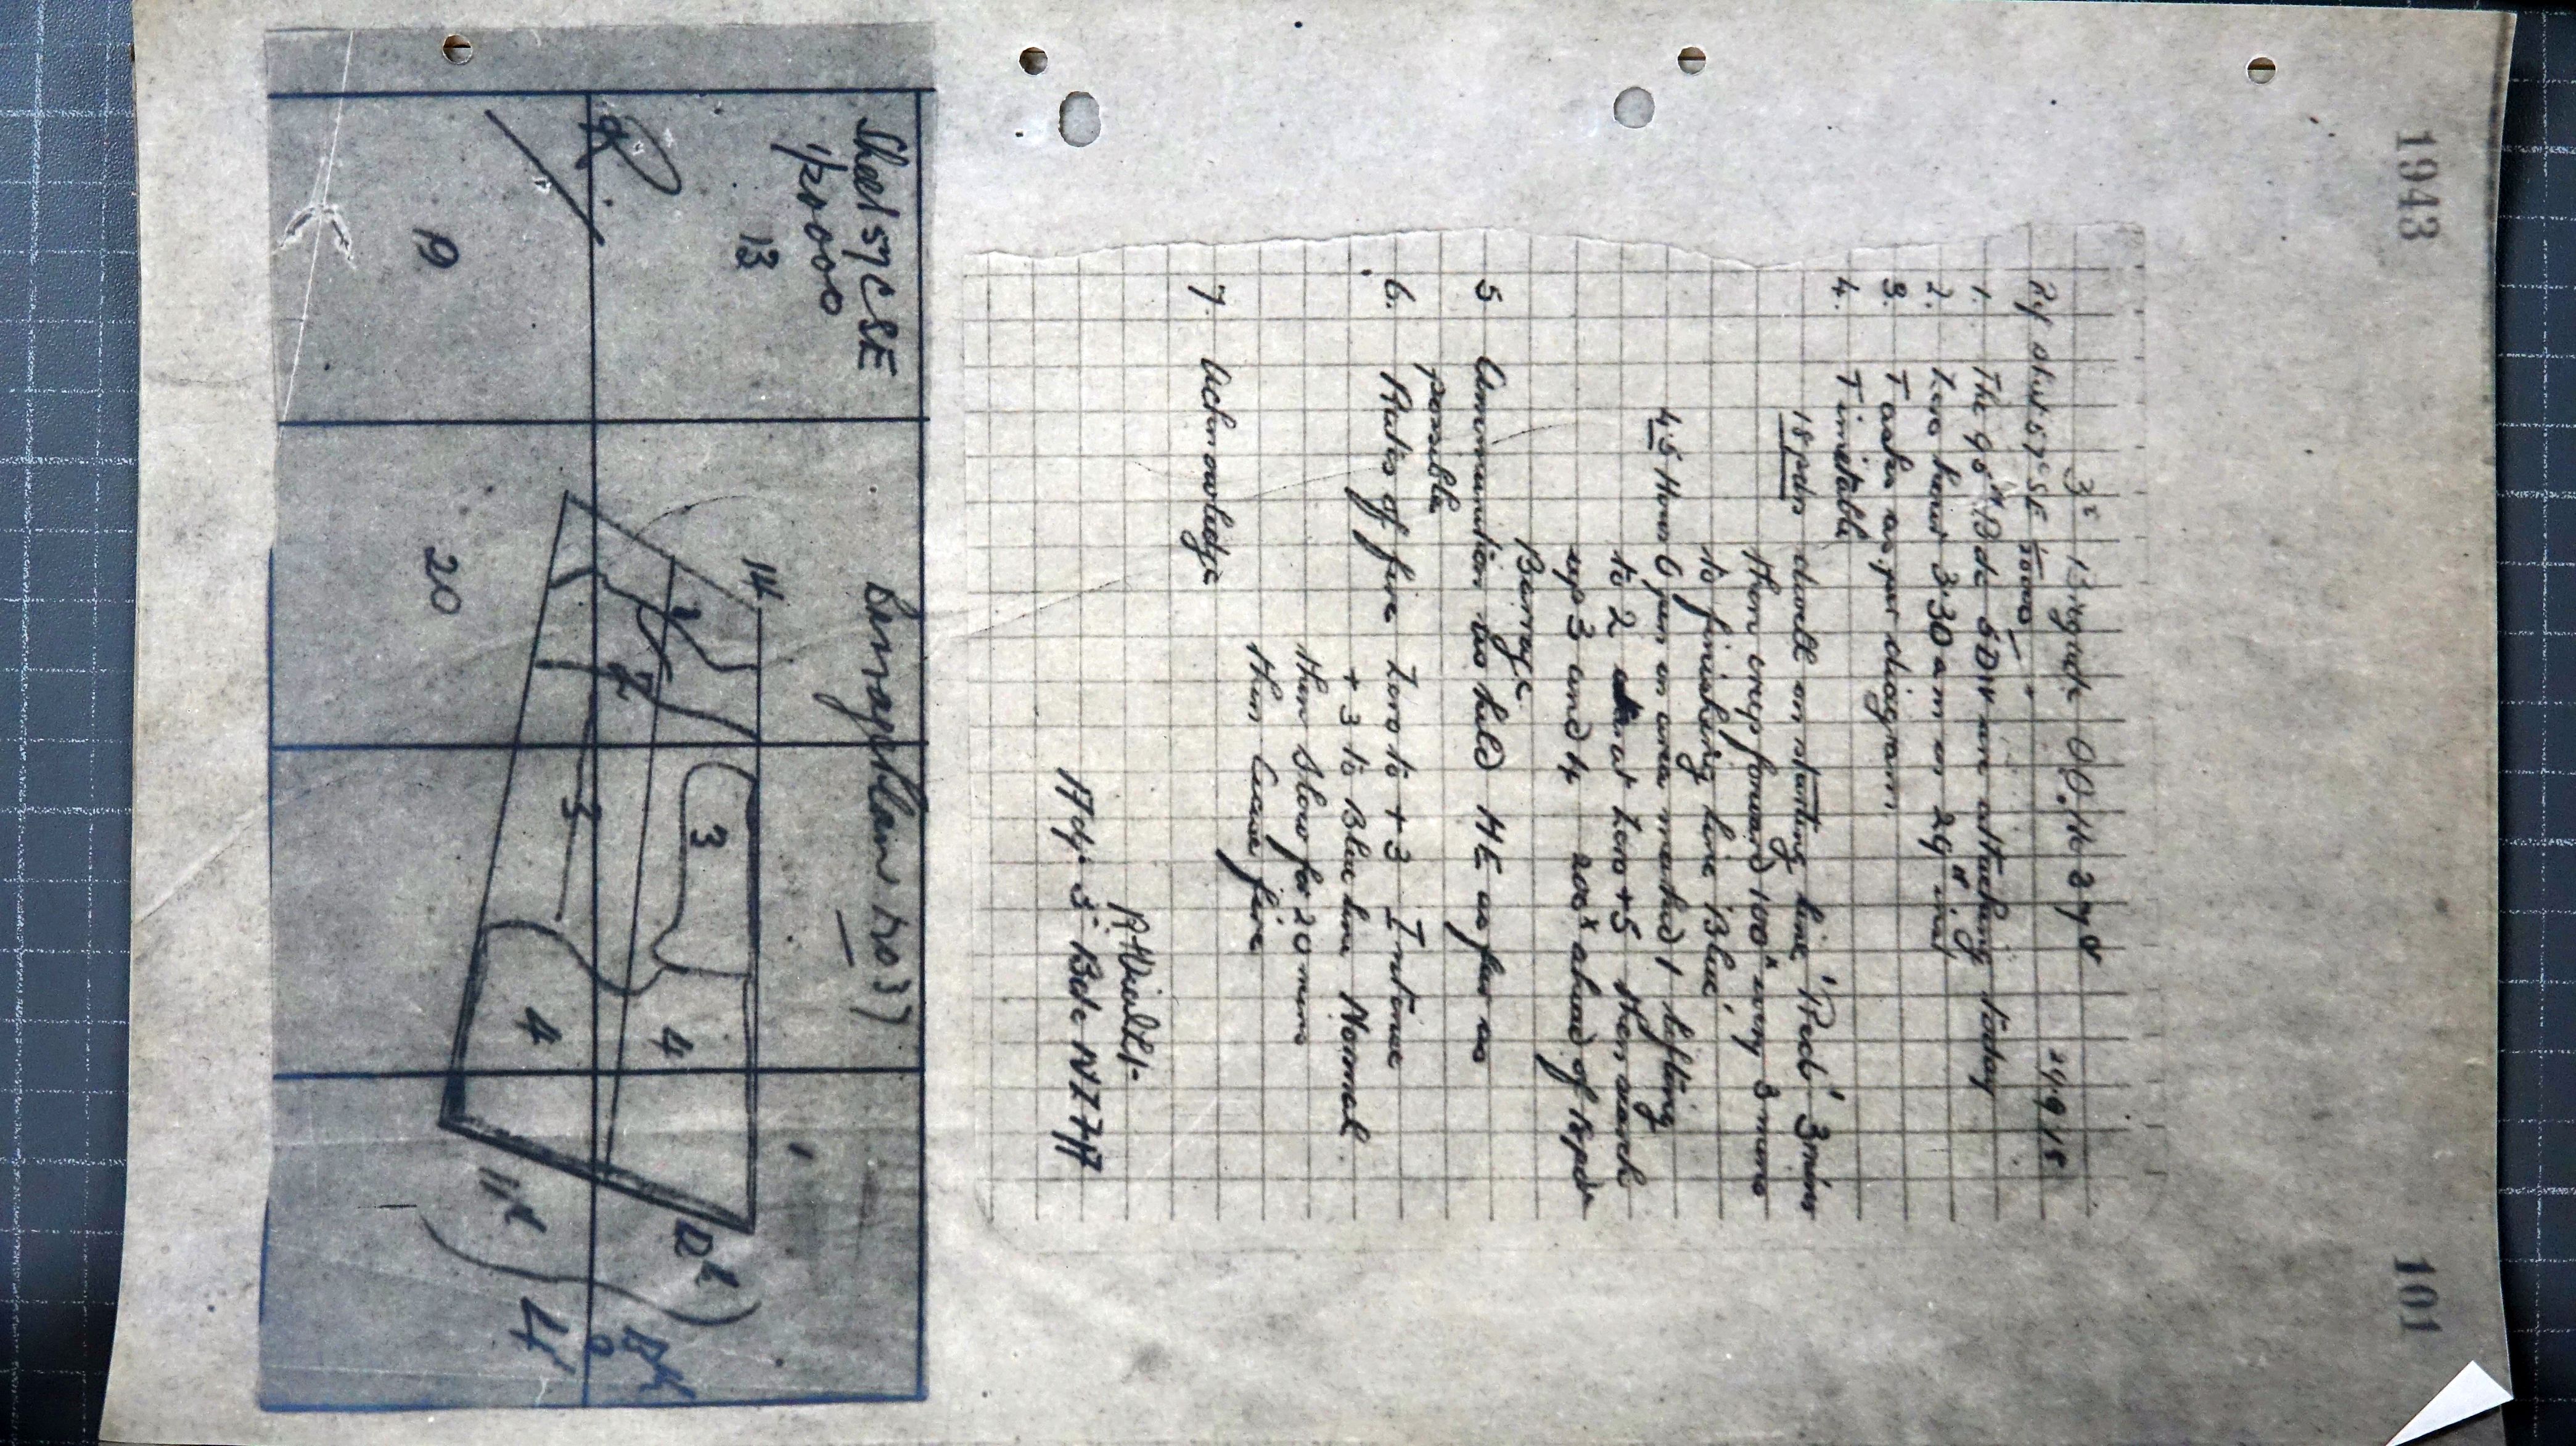 1943
101
3rd Brigade OO. No 278
29.9.18
Ref Sheet 57c SE 1/20000
1. The 95th Bde 5 Div are attacking today
2. Zero hour 3.30 am on 29th inst
3. Tasks as per diagram
4. Timetable
18 pdrs dwell on starting line 'Red' 3 mins
then creep forward 100x every 3 mins
to finishing line 'Blue'
4.5 Hows 6 pm on area marked 1 lifting
to 2 at Zero +5 then search
up 3 and 4 200x ahead of 18pdr
Barrage
5 Ammunition to hold HE as far as
possible
6. Rates of fire Zero to +3 Intense
+3 to Blue line Normal
then Slow for 20 mins
then Cease fire
7. Acknowledge
Adjt 3 Bde NZFA
Sheet 57C SE
1/20000
13
14
19
20
1
2
3
3
4
4